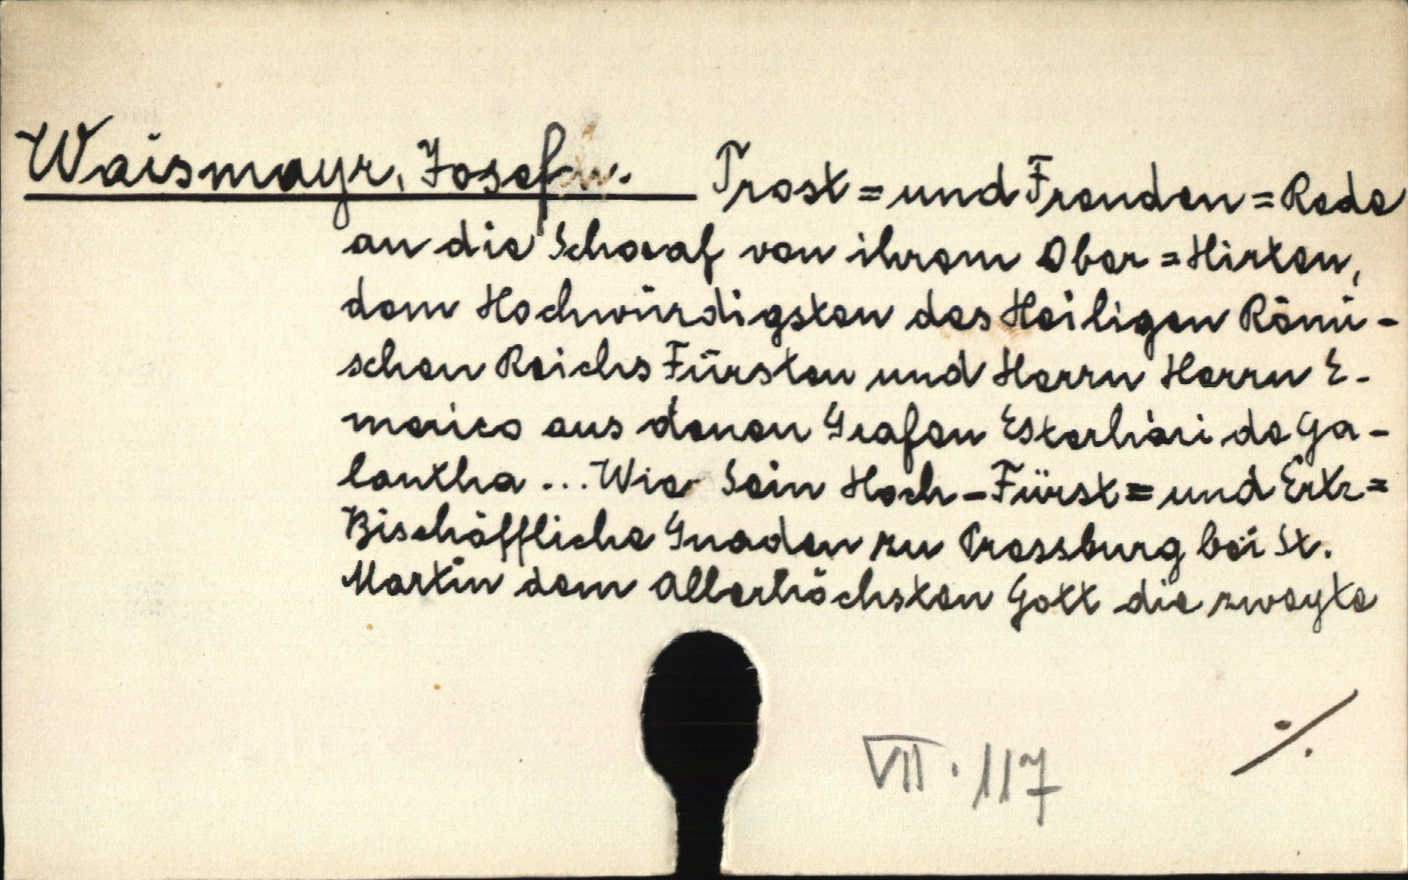 Weismayr, Josef. Trost= und Freuden=Rede
an die Schoeaf von ihrem Ober=Hirten,
dem Hochwürdigsten des Heiligen Römi-
schen Reichs Fürsten und Herrn Herrn E-
merico aus denen Grafen Esterházi de Ga-
lantha ... Wie Sein Hoch-Fürst= und Ertz=
Bischöffliche Gnaden zu Pressburg bei St.
Martin dem Allerhöchsten Gott die zweyte
VII. 117 ./.